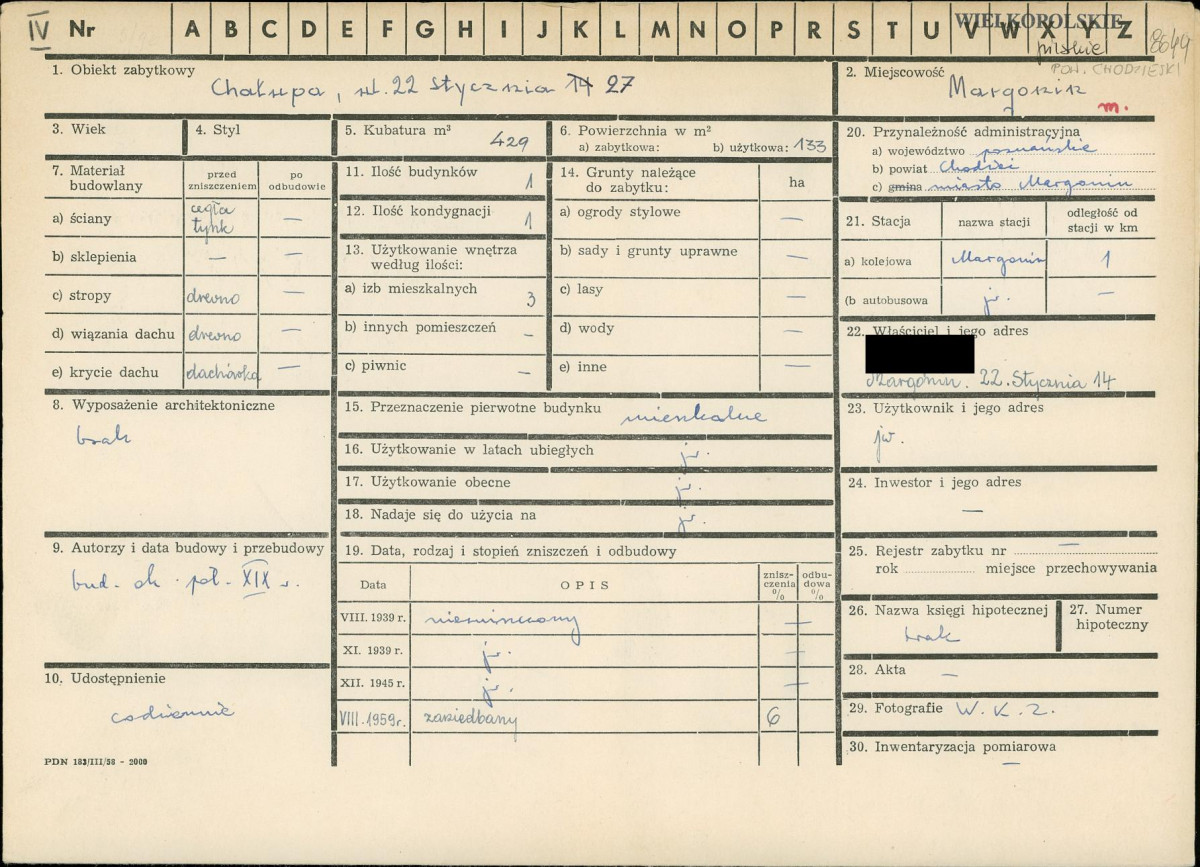 IV Nr A B C D E F G H I J K L M N O P R S T U V W X Y Z
WIELKOPOLSKIE
pilskie
8649
POW. CHODZIESKI
1. Obiekt zabytkowy
Chałupa, ul. 22 Stycznia 14 27
2. Miejscowość
Margonin
m.
3. Wiek
4. Styl
5. Kubatura m³
429
6. Powierzchnia w m²
a) zabytkowa: b) użytkowa: 133
7. Materiał budowlany
przed zniszczeniem
po odbudowie
a) ściany cegła tynk —
b) sklepienia — —
c) stropy drewno —
d) wiązania dachu drewno —
e) krycie dachu dachówka —
8. Wyposażenie architektoniczne
brak
9. Autorzy i data budowy i przebudowy
bud. ok. poł. XIX w.
10. Udostępnienie
codziennie
PDN 183/III/58 - 2000
11. Ilość budynków 1
12. Ilość kondygnacji 1
13. Użytkowanie wnętrza według ilości:
a) izb mieszkalnych 3
b) innych pomieszczeń —
c) piwnic —
14. Grunty należące do zabytku:
ha
a) ogrody stylowe —
b) sady i grunty uprawne —
c) lasy —
d) wody —
e) inne —
15. Przeznaczenie pierwotne budynku mieszkalne
16. Użytkowanie w latach ubiegłych jw.
17. Użytkowanie obecne jw.
18. Nadaje się do użycia na jw.
19. Data, rodzaj i stopień zniszczeń i odbudowy
Data
OPIS
zniszczenia %
odbudowa %
VIII. 1939 r. niezniszczony —
XI. 1939 r. jw. —
XII. 1945 r. jw. —
VIII. 1959 r. zaniedbany 6
20. Przynależność administracyjna
a) województwo poznańskie
b) powiat Chodzież
c) gmina miasto Margonin
21. Stacja
nazwa stacji
odległość od stacji w km
a) kolejowa Margonin 1
(b autobusowa jw. —
22. Właściciel i jego adres
Margonin. 22. Stycznia 14
23. Użytkownik i jego adres
jw.
24. Inwestor i jego adres
—
25. Rejestr zabytku nr —
rok miejsce przechowywania
26. Nazwa księgi hipotecznej
brak
27. Numer hipoteczny
28. Akta —
29. Fotografie W. K. Z.
30. Inwentaryzacja pomiarowa
—